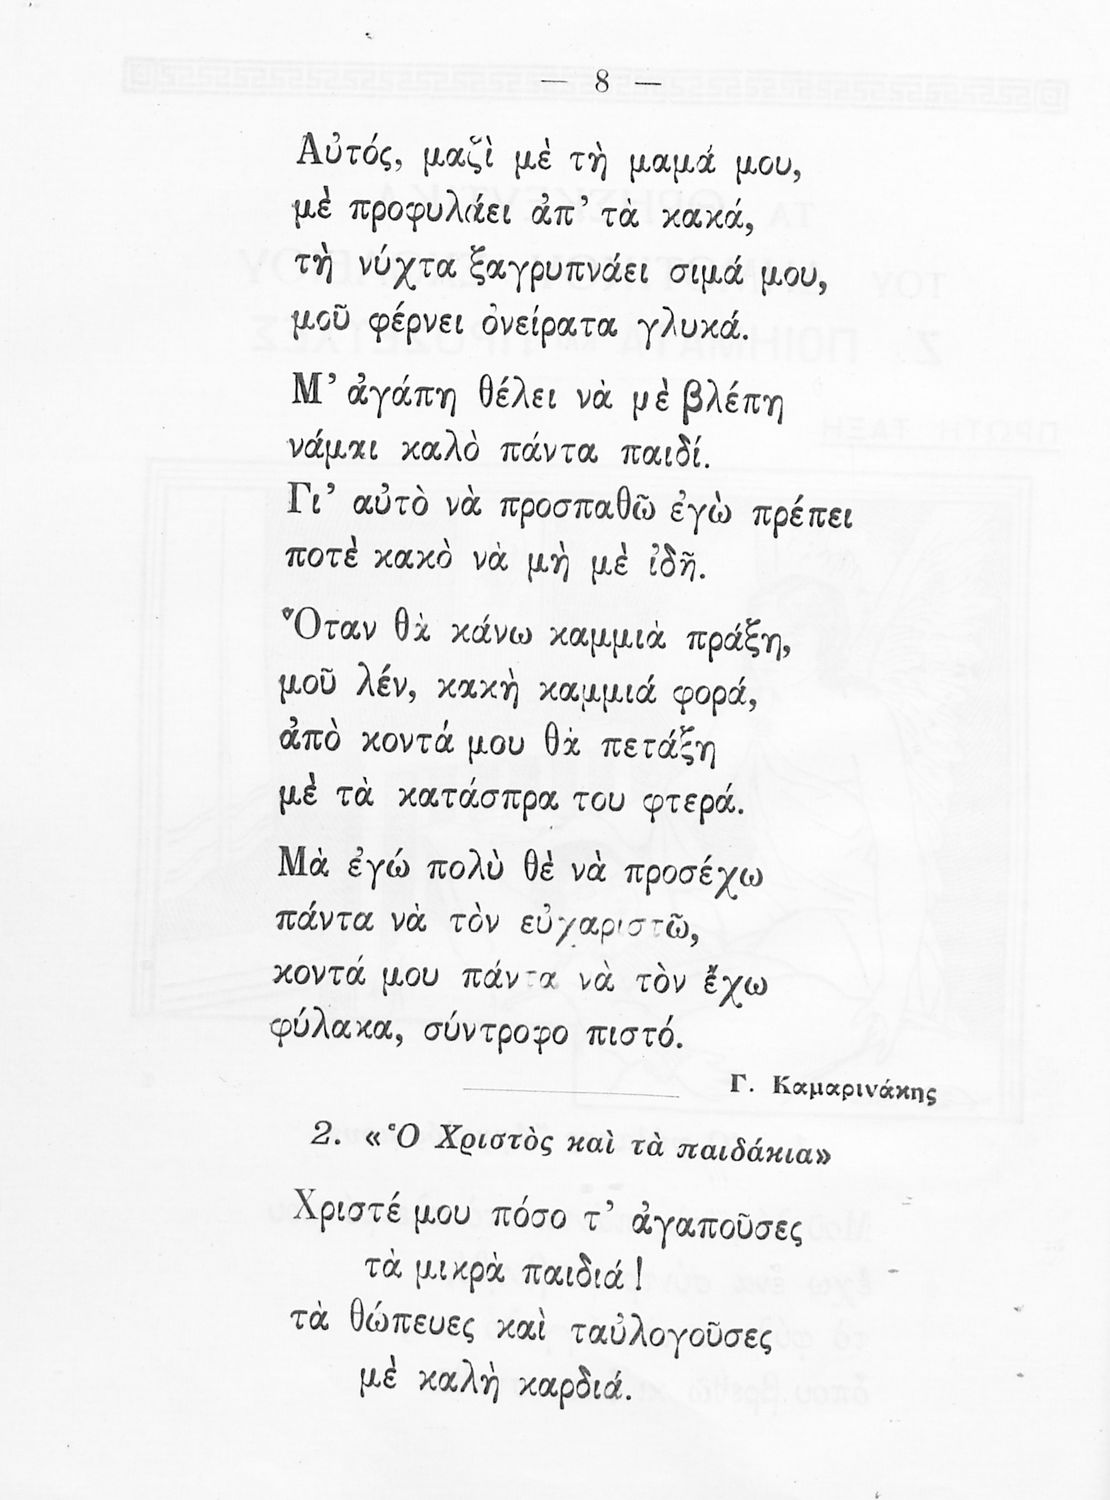 — 8 —
Αὐτός, μαζὶ μὲ τὴ μαμά μου,
μὲ προφυλάει ἀπ’ τὰ κακά,
τὴ νύχτα ξαγρυπνάει σιμά μου,
μοῦ φέρνει ὀνείρατα γλυκά.
Μ’ ἀγάπη θέλει νὰ μὲ βλέπη
νάμαι καλὸ πάντα παιδί.
Γι’ αὐτὸ νὰ προσπαθῶ ἐγὼ πρέπει
ποτὲ κακὸ νὰ μὴ μὲ ἰδῆ.
Ὅταν θὰ κάνω καμμιὰ πράξη,
μοῦ λέν, κακὴ καμμιά φορά,
ἀπὸ κοντά μου θὰ πετάξη
μὲ τὰ κατάσπρα του φτερά.
Μὰ ἐγώ πολὺ θὲ νὰ προσέχω
πάντα νὰ τὸν εὐχαριστῶ,
κοντά μου πάντα νὰ τὸν ἔχω
φύλακα, σύντροφο πιστό.
Γ. Καμαρινάκης
2. «Ὁ Χριστὸς καὶ τὰ παιδάκια»
Χριστέ μου πόσο τ’ ἀγαποῦσες
τὰ μικρὰ παιδιά!
τὰ θώπευες καὶ ταὐλογοῦσες
μὲ καλὴ καρδιά.